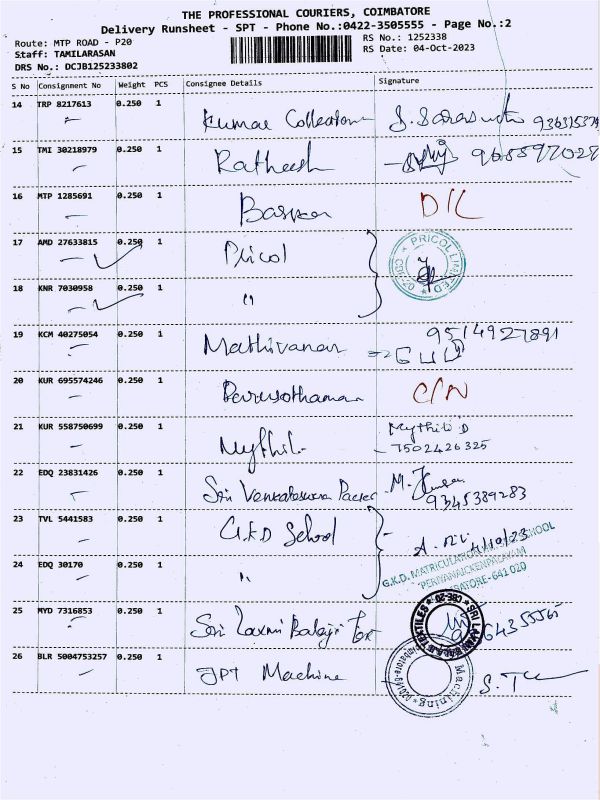 THE PROFESSIONAL COURIERS, COIMBATORE
Delivery Runsheet - SPT - Phone No.:0422-3505555 - Page No.:2
Route: MTP ROAD - P20
Staff: TAMILARASAN
DRS No.: DCJB125233802
RS No.: 1252338
RS Date: 04-Oct-2023
S No Consignment No Weight PCS Consignee Details Signature
14 TRP 8217613 0.250 1
Kumar Collections
15 TMI 30218979 0.250 1
Ratheesh
16 MTP 1285691 0.250 1
Baskar D/L
17 AMD 27633815 0.250 1
Pricol
PRICOL LIMITED
CBE-20
18 KNR 7030958 0.250 1
"
19 KCM 40275054 0.250 1
Mathivanan 9514927891
20 KUR 695574246 0.250 1
C/N
21 KUR 558750699 0.250 1
Mythili Mythili D
7502426325
22 EDQ 23831426 0.250 1
Sri Venkateswara M.
9345389283
23 TVL 5441583 0.250 1
G.K.D School 4/10/23
G.K.D. MATRICULATION SCHOOL
PERIYANAICKENPALAYAM
COIMBATORE-641 020
24 EDQ 30170 0.250 1
"
25 MYD 7316853 0.250 1
Sri Laxmi Balaji Tex
SRI LAXMI BALAJI TEXTILES
CBE-20
26 BLR 5004753257 0.250 1
JPT Machine
Machining